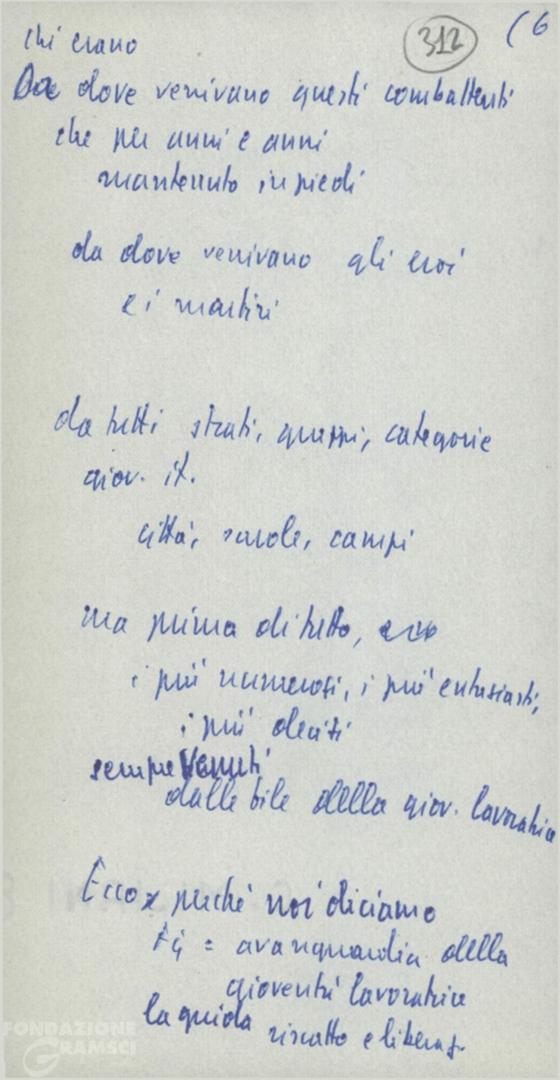 312 (6
chi erano
Da dove venivano questi combattenti
che per anni e anni
mantenuto in piedi
da dove venivano gli eroi
e i martiri
da tutti strati, gruppi, categorie
giov. it.
città, scuole, campi
ma prima di tutto,
i più numerosi, i più entusiasti,
i più decisi
sempre venuti
dalle file della giov. lavoratrice
Ecco perché noi diciamo
= avanguardia della
gioventù lavoratrice
la guida riscatto e liberaz.
FONDAZIONE
GRAMSCI